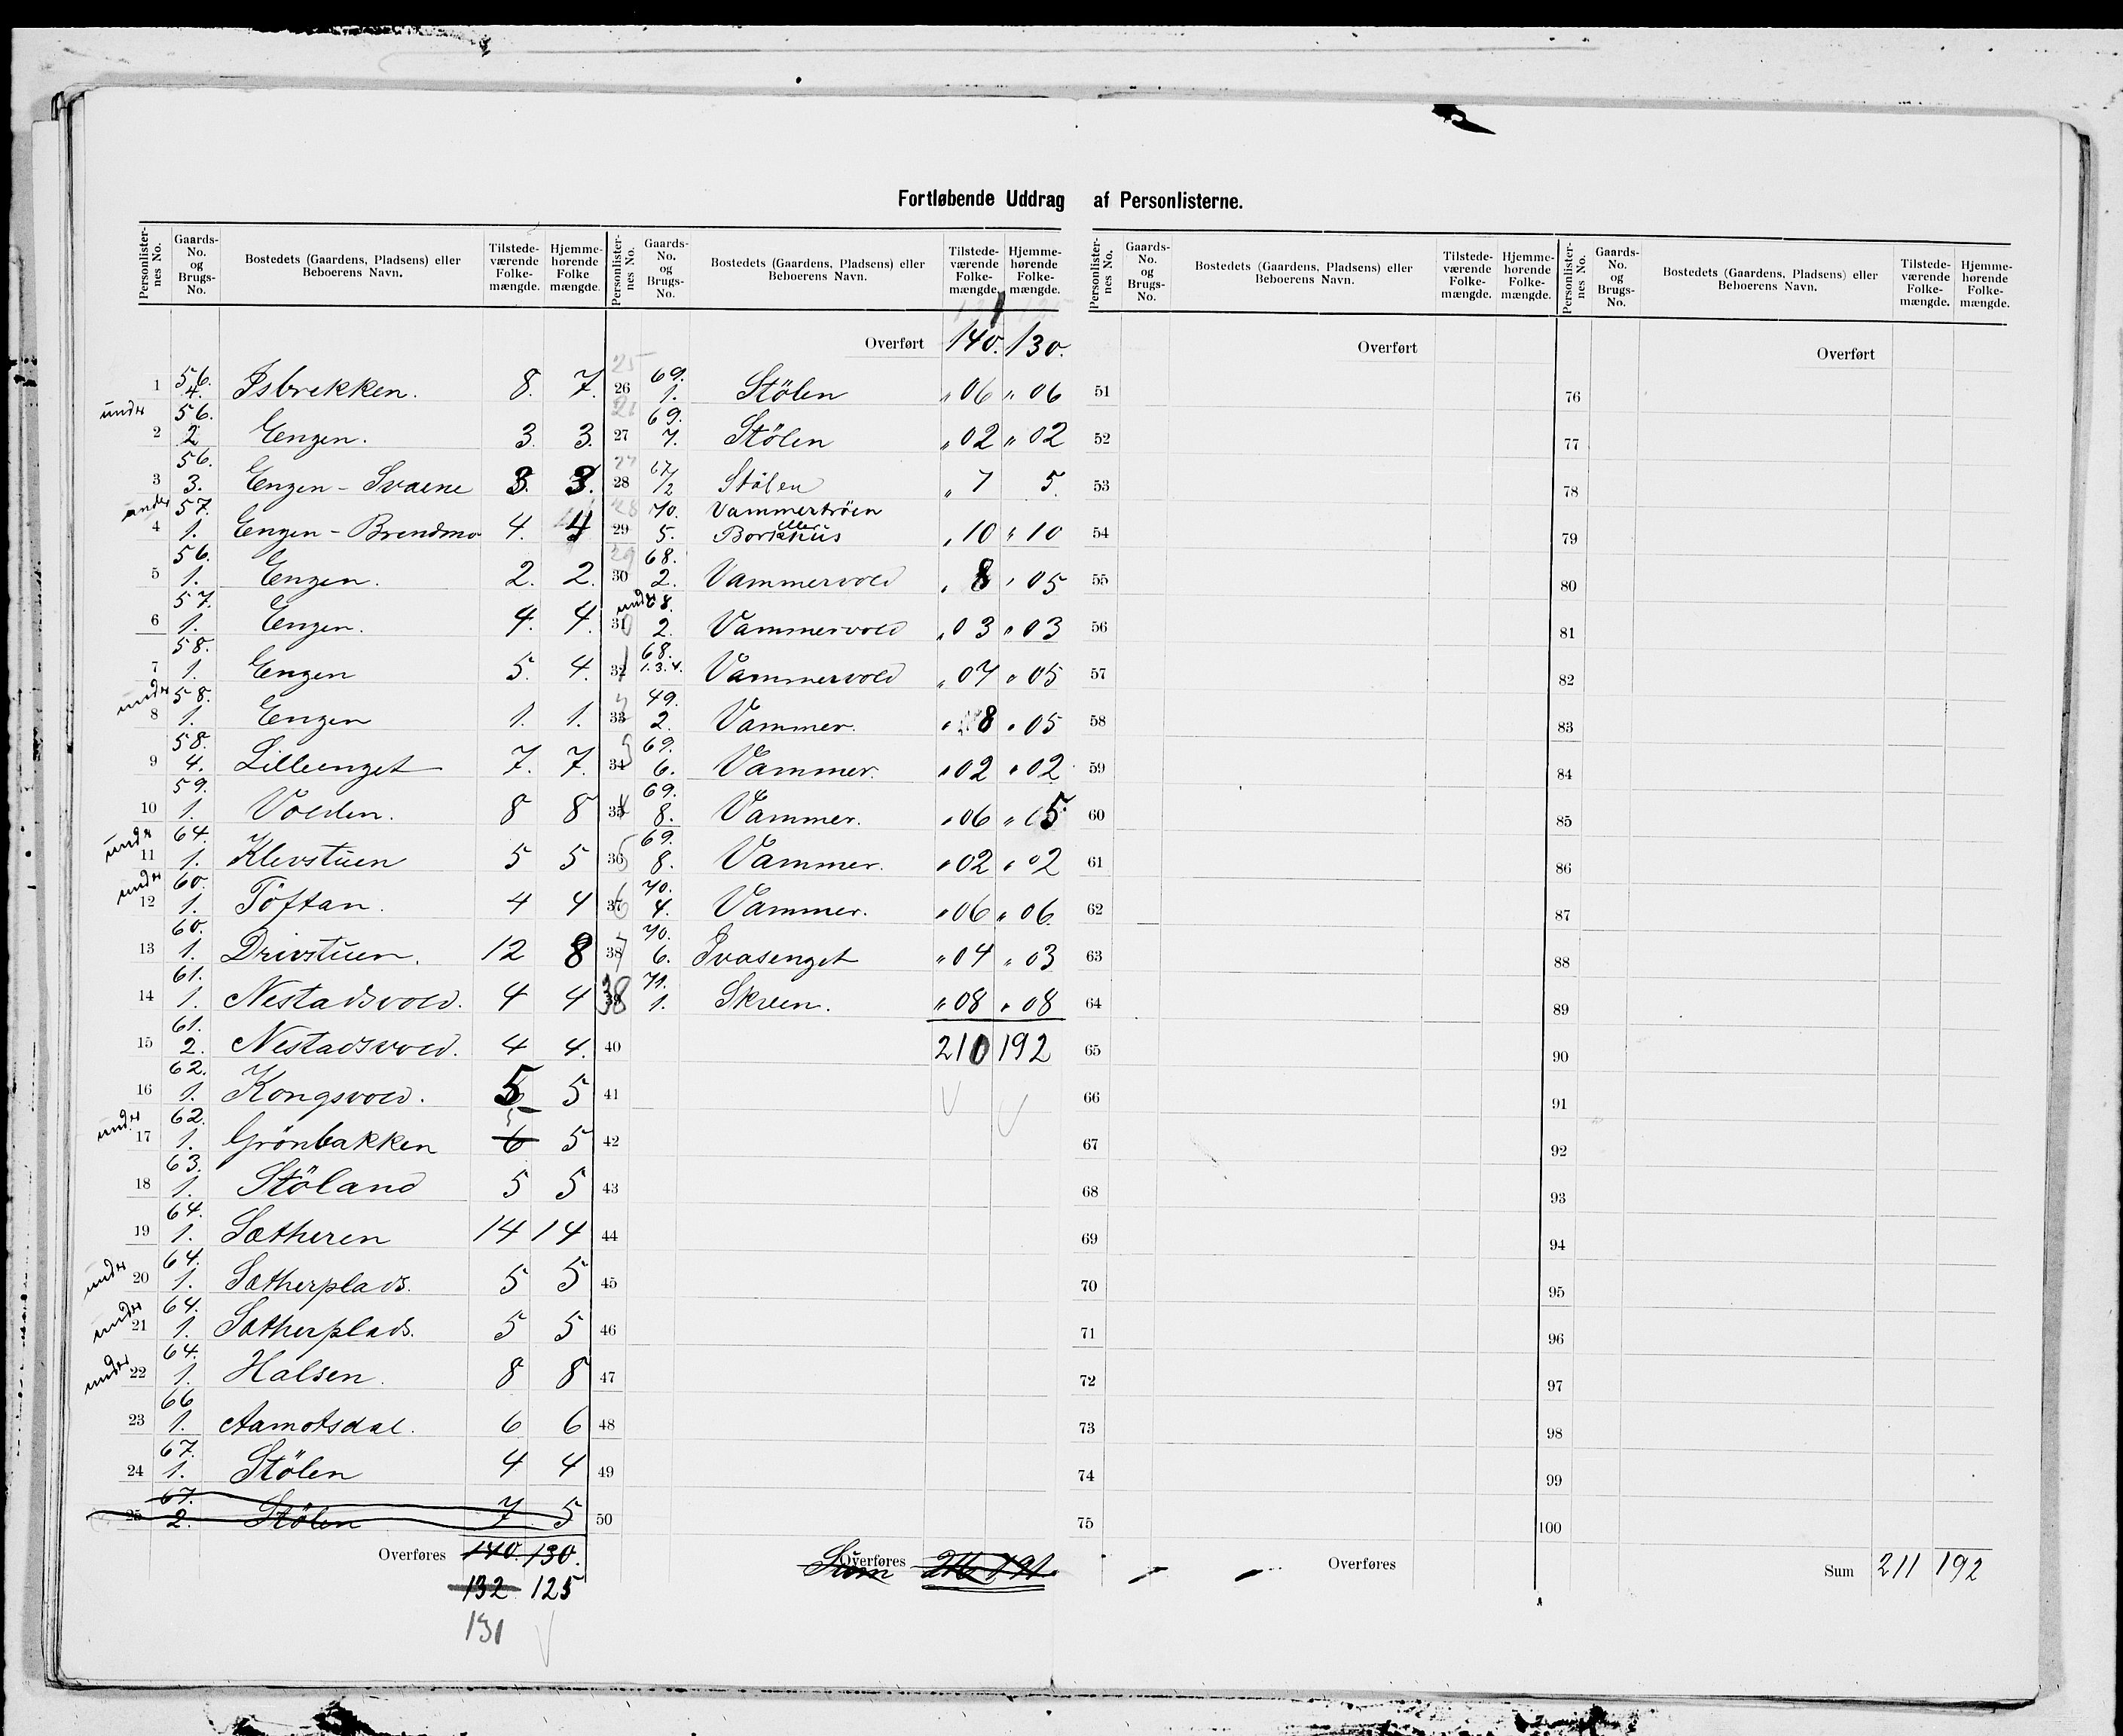 Fortløbende Uddrag af Personlisterne.
Personlisternes No. Gaards-No. og Brugs-No. Bostedets (Gaardens, Pladsens) eller Beboerens Navn. Tilstedeværende Folkemængde. Hjemmehørende Folkemængde.
Personlisternes No. Gaards-No. og Brugs-No. Bostedets (Gaardens, Pladsens) eller Beboerens Navn. Tilstedeværende Folkemængde. Hjemmehørende Folkemængde.
Personlisternes No. Gaards-No. og Brugs-No. Bostedets (Gaardens, Pladsens) eller Beboerens Navn. Tilstedeværende Folkemængde. Hjemmehørende Folkemængde.
Personlisternes No. Gaards-No. og Brugs-No. Bostedets (Gaardens, Pladsens) eller Beboerens Navn. Tilstedeværende Folkemængde. Hjemmehørende Folkemængde.
1 56. 4. Isbrekken. 8. 7.
under 2 56. 2 Engen. 3. 3.
3 56. 3. Engen - Svaene 3. 3.
under 4 57. 1. Engen - Brendmo 4. 4
5 56. 1. Engen. 2. 2.
6 57. 1. Engen. 4. 4.
7 58. 1. Engen 5. 4.
under 8 58. 1. Engen 1. 1.
9 58. 4. Lilleenget 7. 7.
10 59. 1. Volden. 8 8
under 11 64. 1. Klevstuen 5 5
under 12 60. 1. Töftan. 4 4
13 60. 1. Drivstuen. 12 8
14 61. 1. Nestadsvold. 4 4
15 61. 2. Nestadsvold. 4 4.
16 62. 1. Kongsvold. 5 5
under 17 62. 1. Grönbakken 6 5 5
18 63. 1. Stöland 5 5
19 64. 1. Sætheren 14 14
under 20 64. 1. Sætherplads. 5 5
under 21 64. 1. Sætherplads. 5 5
under 22 64. 1. Halsen. 8 8
23 66 1. Aamotsdal. 6 6
24 67. 1. Stölen 4 4
25 67. 2. Stölen 7 5
Overføres 140. 130.
132 125
131
Overført 140. 130.
25 26 69. 1. Stölen " 06 " 06
27 69. 7. Stölen " 02 " 02
27 28 67/2 Stölen " 7 5.
28 29 70. 5. Vammerbröen eller Borkhus " 10 " 10
29 30 68. 2. Vammervold " 8 " 05
under 31 68. 2. Vammervold " 03 " 03
32 68. 1.3.4. Vammervold " 07 " 05
33 49. 2. Vammer. " 8 " 05
34 69. 6. Vammer. " 02 " 02
35 69. 8. Vammer. " 06 " 5
36 69. 8. Vammer. " 02 " 02
37 70. 4. Vammer. " 06 " 06
38 70. 6. Ivasenget " 04 " 03
38 39 71. 1. Skreen. " 08 " 08
40 210 192
41
42
43
44
45
46
47
48
49
50
Overføres Sum
Overført
51
52
53
54
55
56
57
58
59
60
61
62
63
64
65
66
67
68
69
70
71
72
73
74
75
Overføres
Overført
76
77
78
79
80
81
82
83
84
85
86
87
88
89
90
91
92
93
94
95
96
97
98
99
100
Sum 211 192